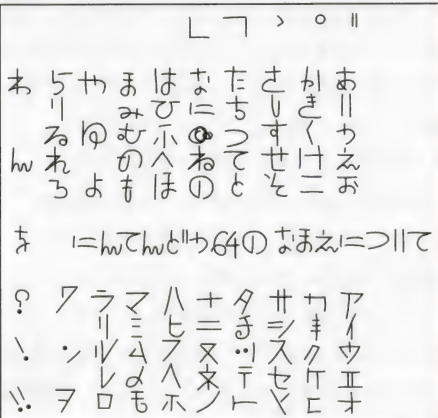 ﹂ ﹁ 、 ゜ ゛
わ ら や ま は な た さ か あ
り み ひ に ち し き い
る ゆ む ふ ぬ つ す く う
ん れ め へ ね て せ け え
ろ よ も ほ の と そ こ お
を にんてんどう64の なまえについて
? ワ ラ マ ハ ナ タ サ カ ア
リ ミ ヒ ニ チ シ キ イ
! ン ル ム フ ヌ ツ ス ク ウ
レ メ ヘ ネ テ セ ケ エ
!! ヲ ロ モ ホ ノ ト ソ コ オ